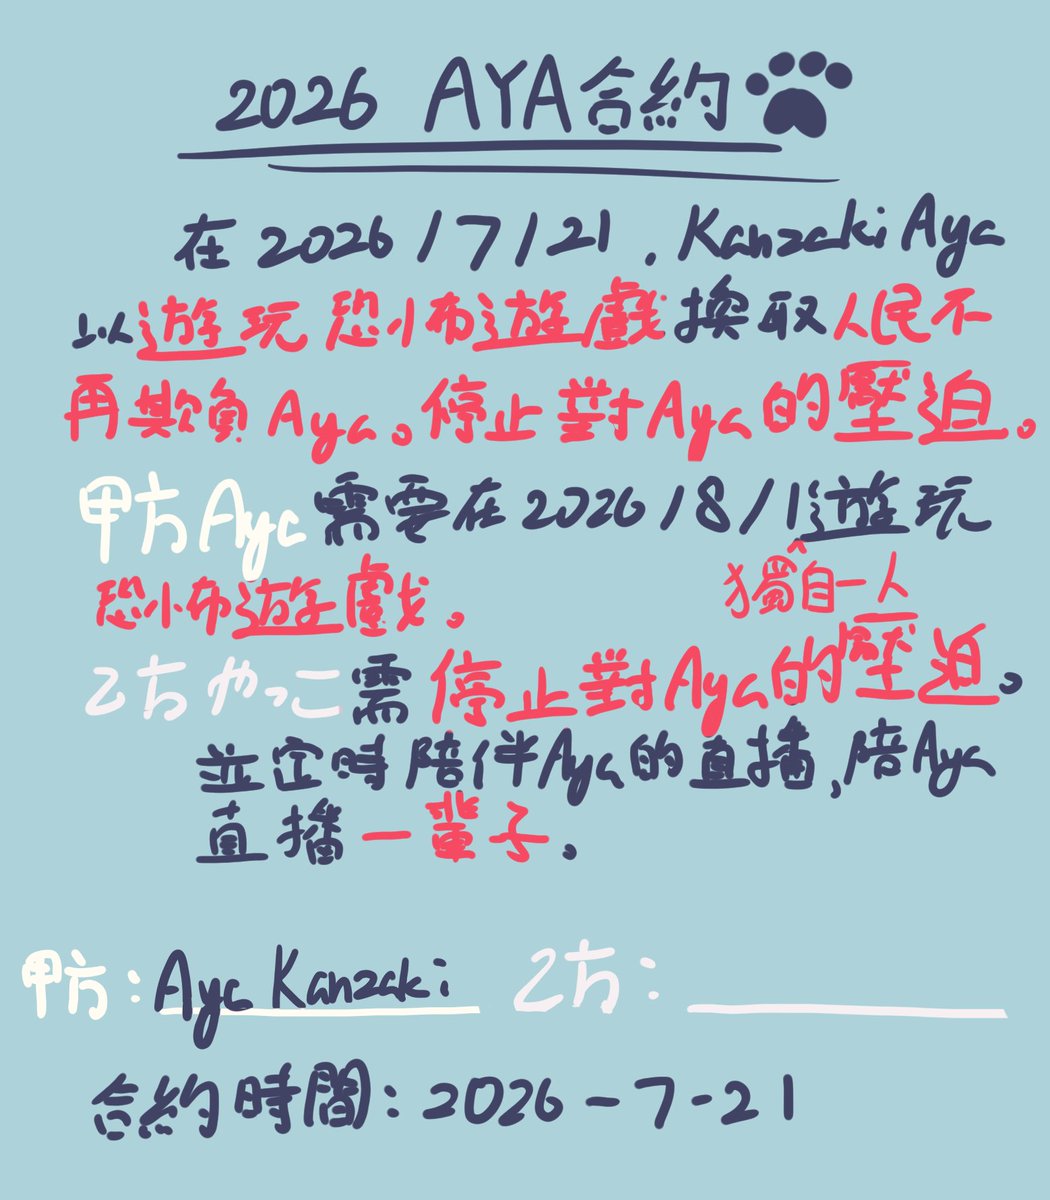 2026 AYA合約
在2026/7/21，Kanzaki Aya
以遊玩恐怖遊戲換取人民不
再欺負Aya。停止對Aya的壓迫。
甲方Aya需要在2026/8/1遊玩
獨自一人
恐怖遊戲。
乙方やっこ需停止對Aya的壓迫。
並定時陪伴Aya的直播，陪Aya
直播一輩子。
甲方：Aya Kanzaki 乙方：
合約時間：2026-7-21